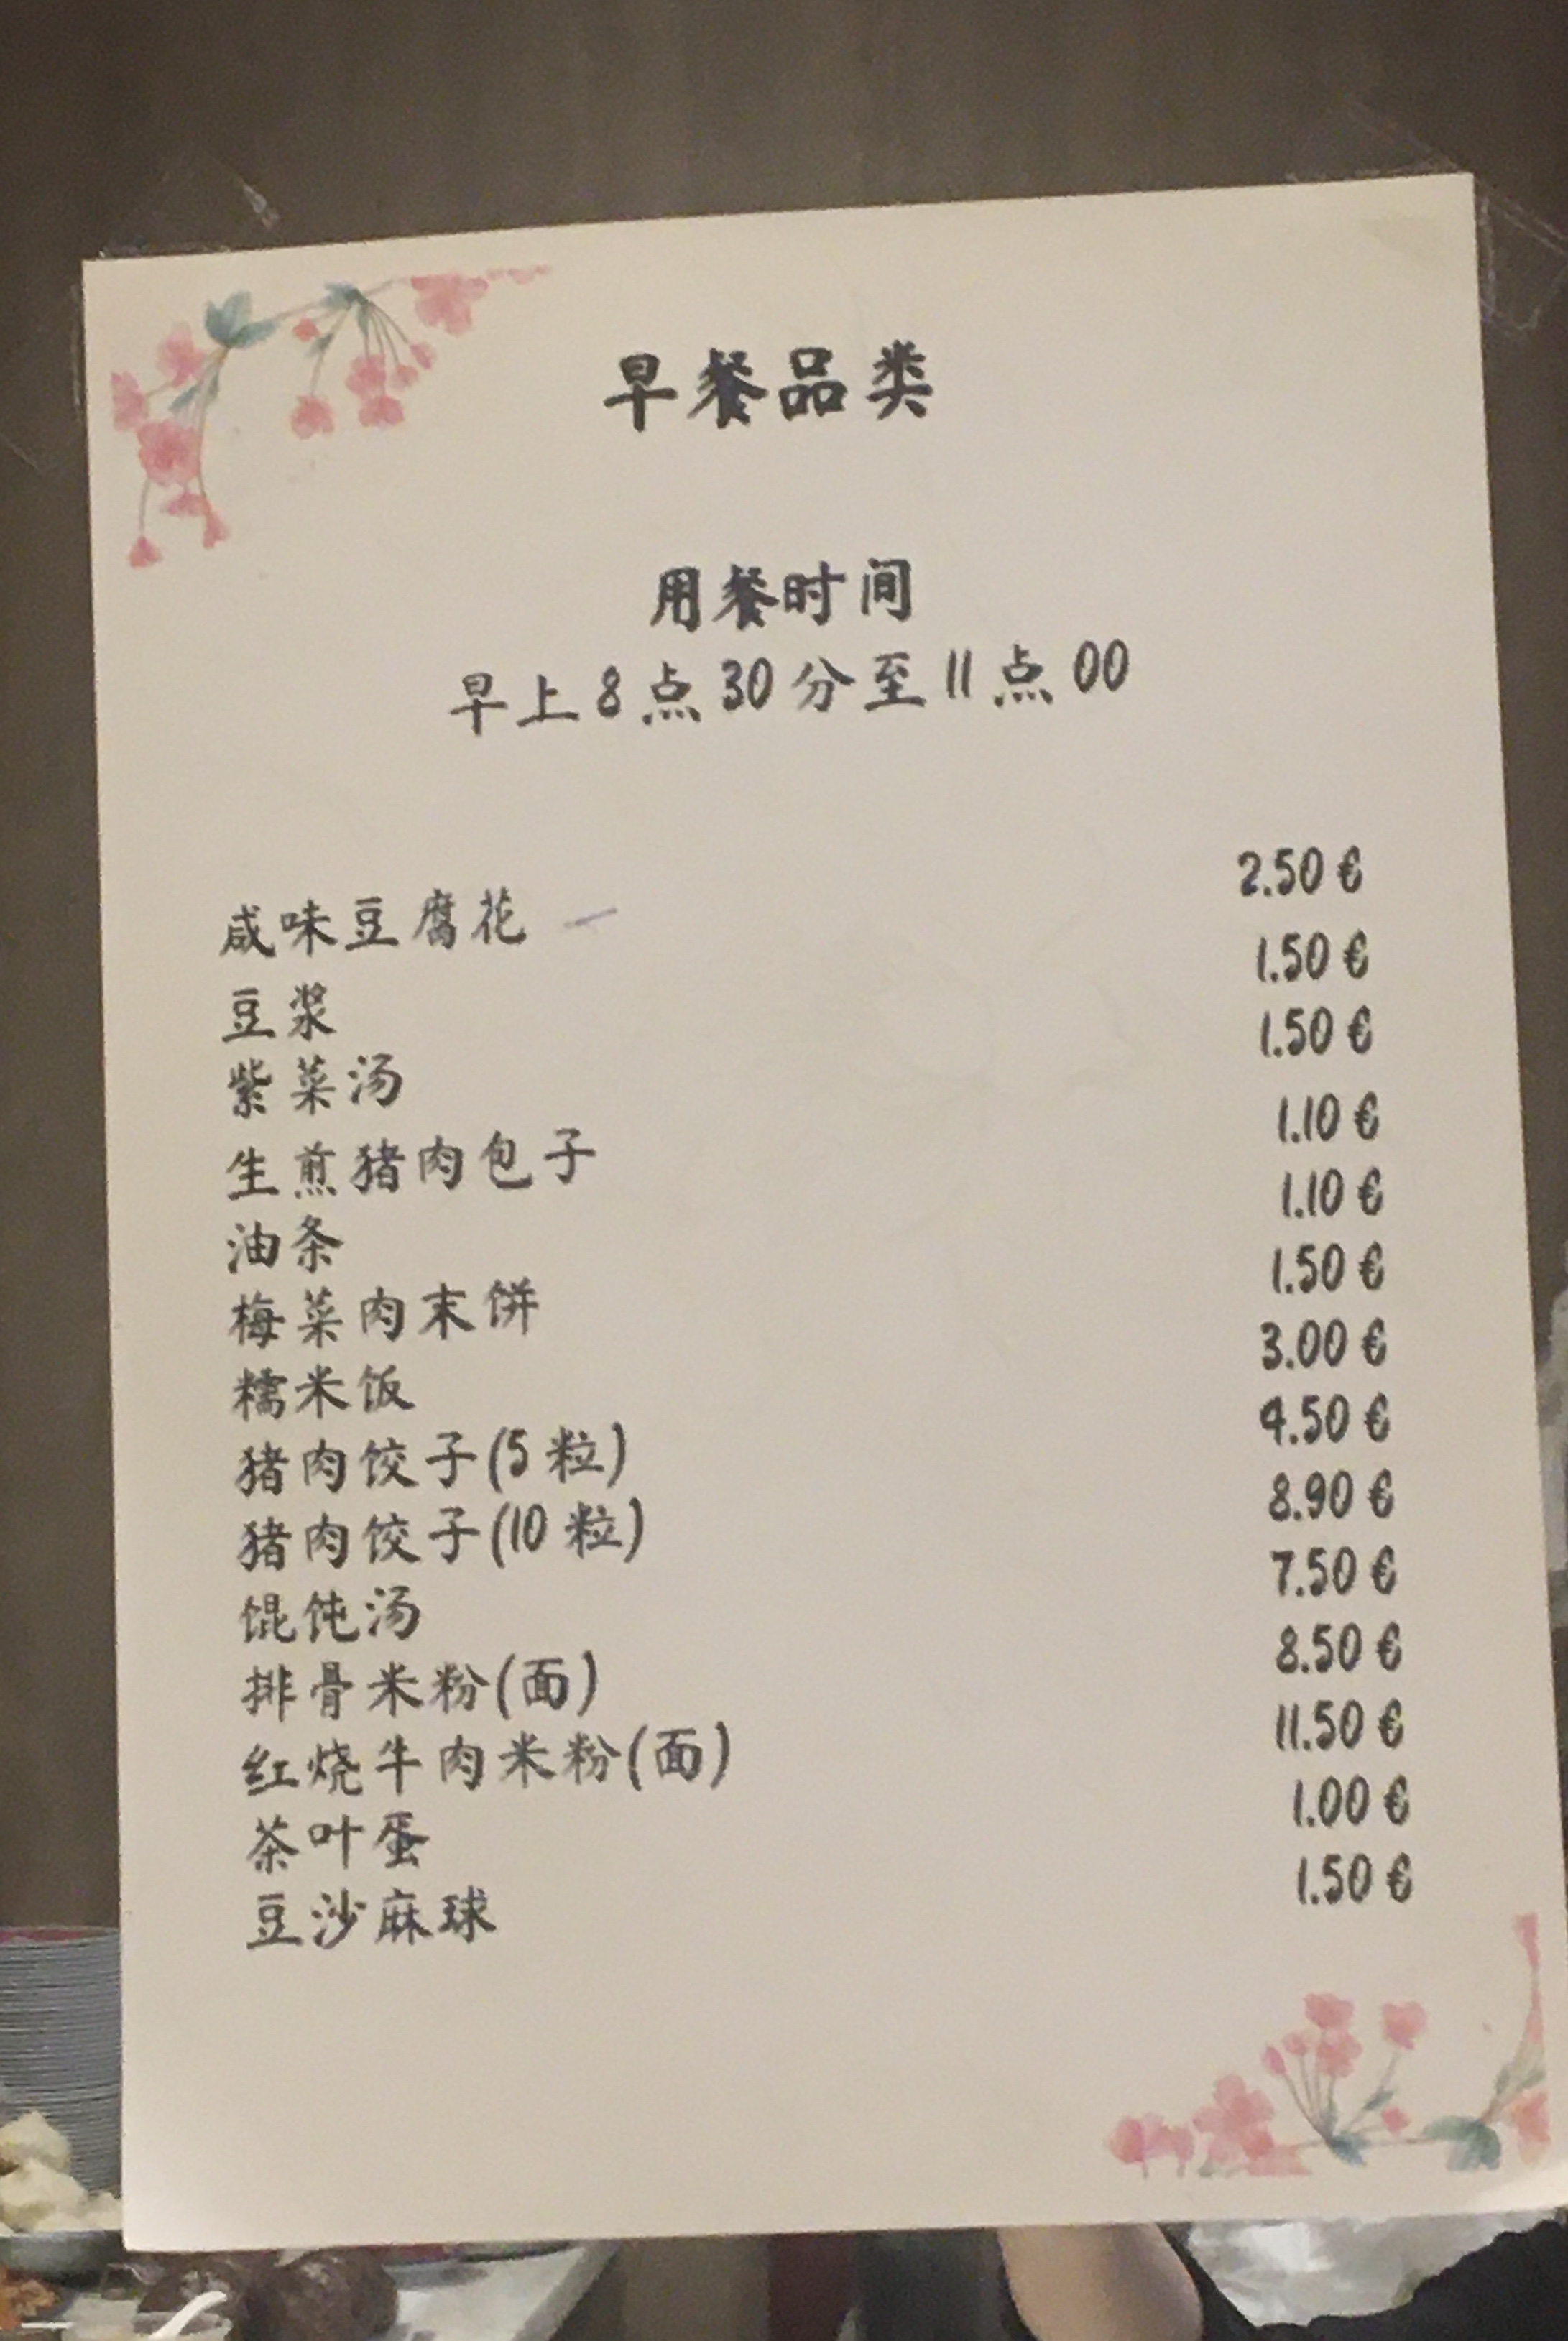 早餐品类
用餐时间
早上8点30分至11点00
咸味豆腐花 2.50 €
豆浆 1.50 €
紫菜汤 1.50 €
生煎猪肉包子 1.10 €
油条 1.10 €
梅菜肉末饼 1.50 €
糯米饭 3.00 €
猪肉饺子(5粒) 4.50 €
猪肉饺子(10粒) 8.90 €
馄饨汤 7.50 €
排骨米粉(面) 8.50 €
红烧牛肉米粉(面) 11.50 €
茶叶蛋 1.00 €
豆沙麻球 1.50 €